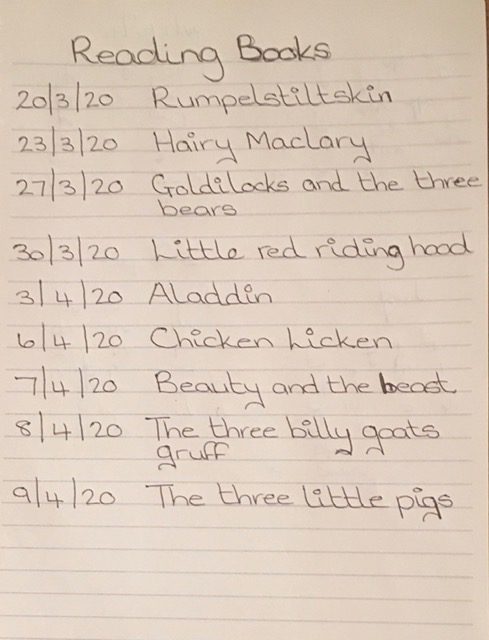 Reading Books
20/3/20 Rumpelstiltskin
23/3/20 Hairy Maclary
27/3/20 Goldilocks and the three
bears
30/3/20 Little red riding hood
3/4/20 Aladdin
6/4/20 Chicken Licken
7/4/20 Beauty and the beast
8/4/20 The three billy goats
gruff
9/4/20 The three little pigs